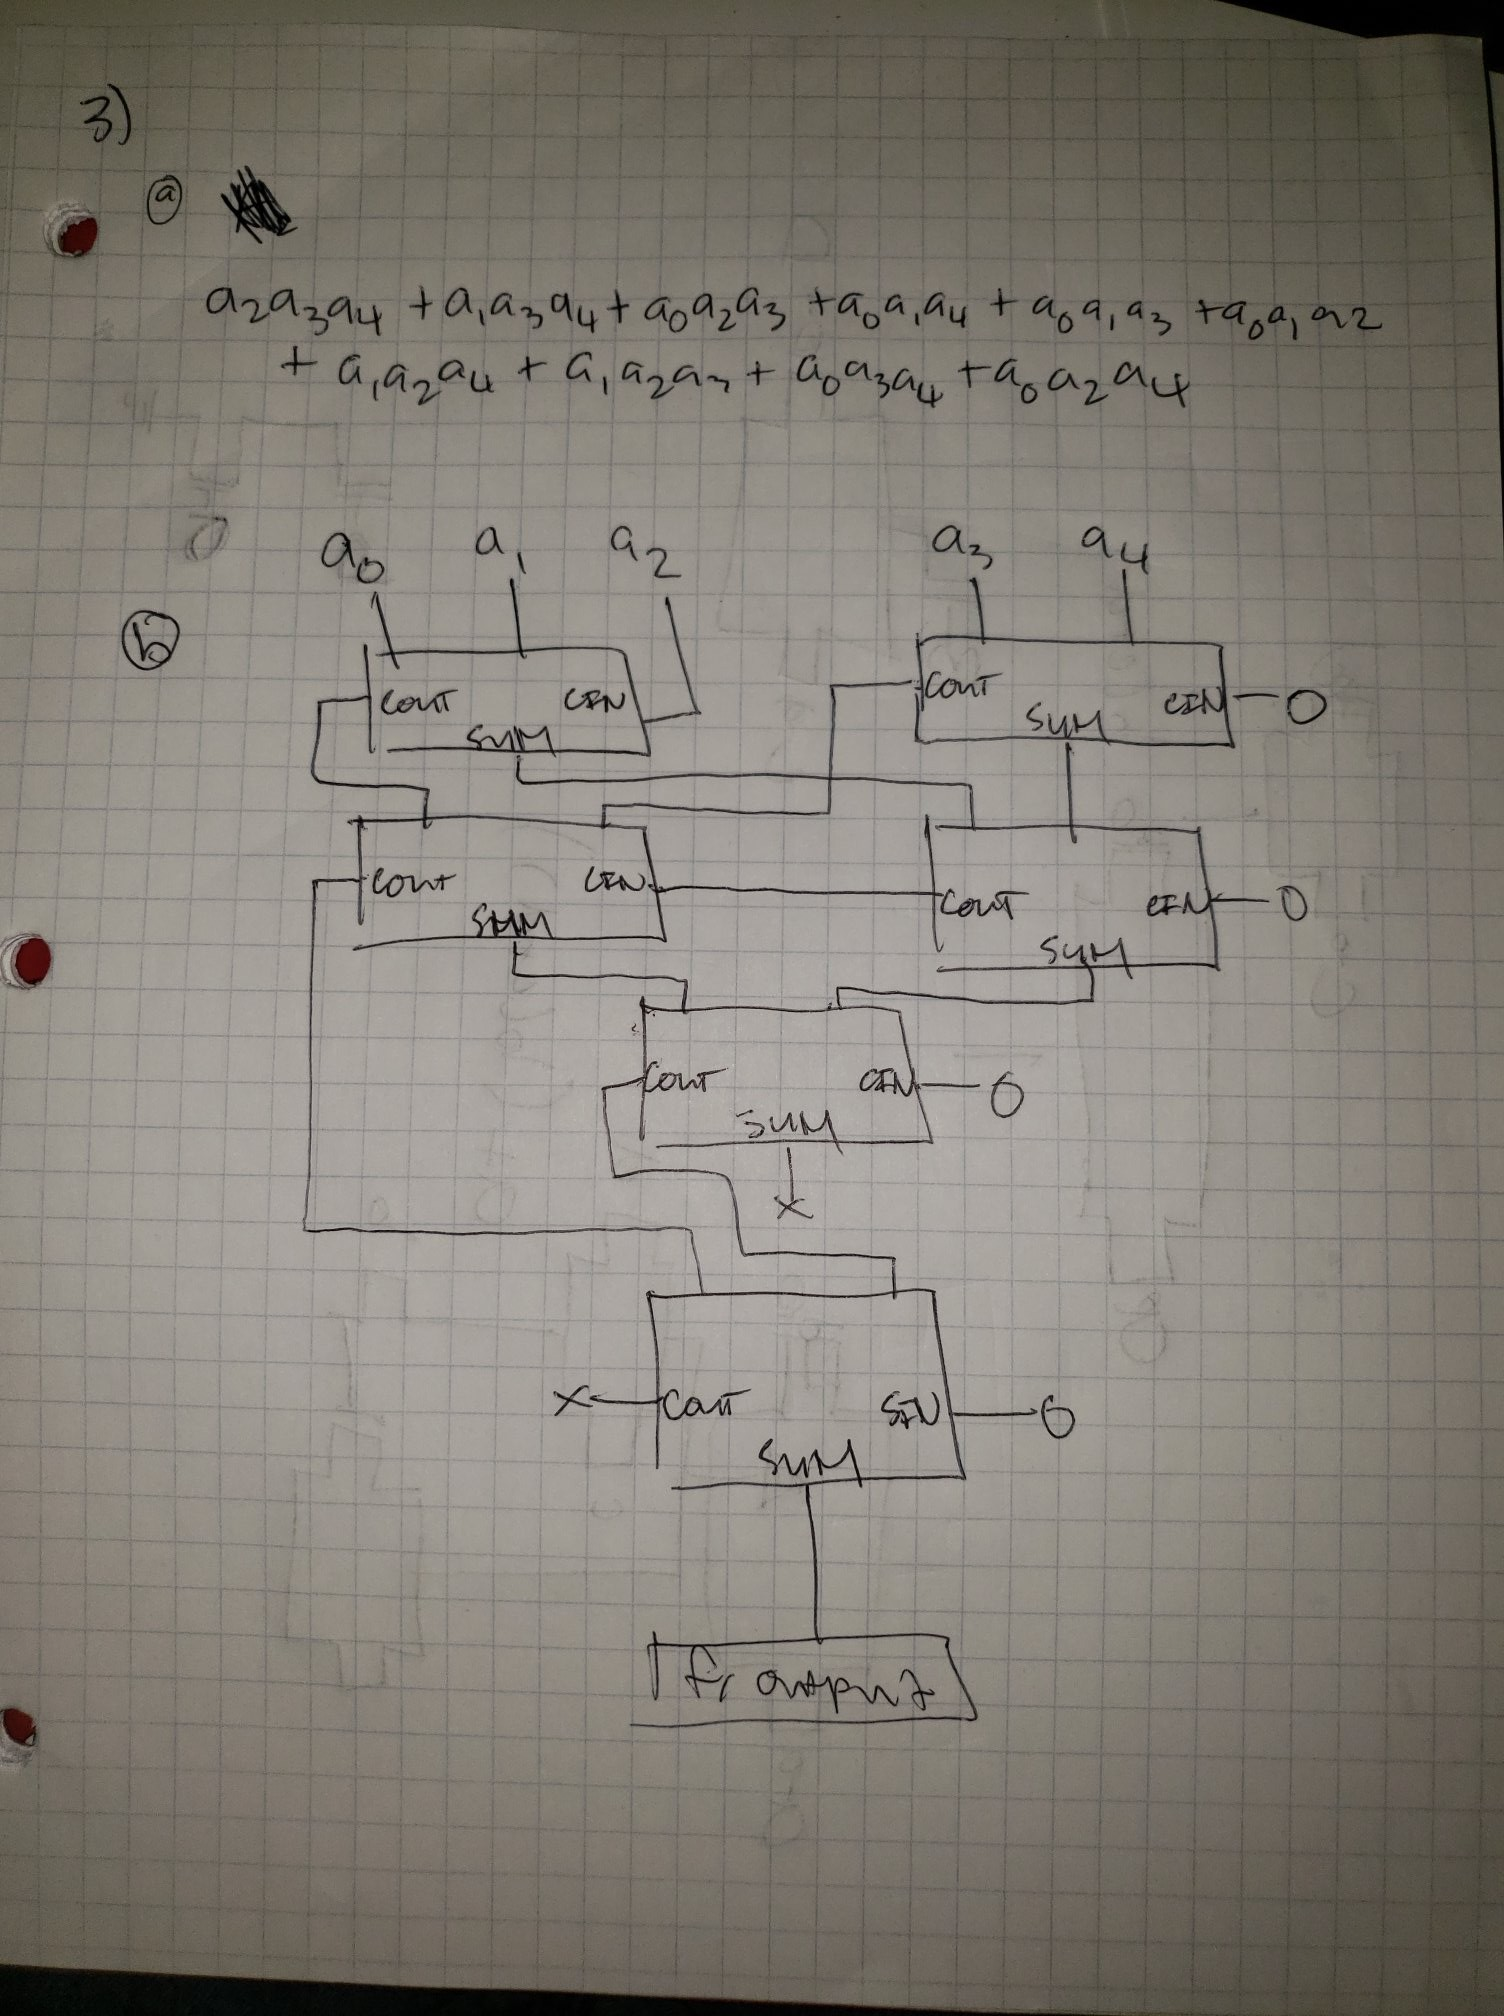 3)
a
a₂a₃a₄ + a₁a₃a₄ + a₀a₂a₃ + a₀a₁a₄ + a₀a₁a₃ + a₀a₁a₂
+ a₁a₂a₄ + a₁a₂a₃ + a₀a₃a₄ + a₀a₂a₄
a₀ a₁ a₂ a₃ a₄
b
COUT CIN COUT CIN 0
SUM SUM
COUT CIN COUT CIN 0
SUM SUM
COUT CIN 0
SUM
X
X COUT SIN 0
SUM
output